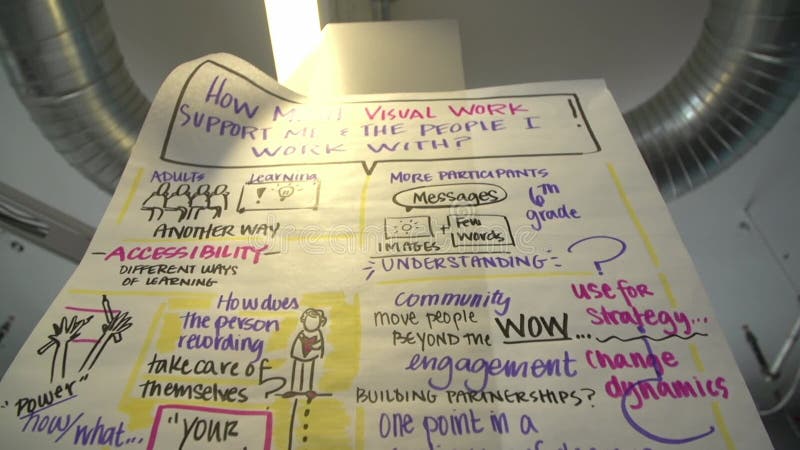 HOW MIGHT VISUAL WORK
SUPPORT ME & THE PEOPLE I
WORK WITH?
ADULTS Learning
ANOTHER WAY
ACCESSIBILITY
DIFFERENT WAYS
OF LEARNING
MORE PARTICIPANTS
Messages
6th
grade
IMAGES + Few
Words
UNDERSTANDING
?
How does
the person
recording
take care of
themselves?
"POWER"
how/what...
"YOUR
community
move people
BEYOND THE WOW...
engagement
BUILDING PARTNERSHIPS?
one point in a
use for
strategy...
change
dynamics
dreamstime